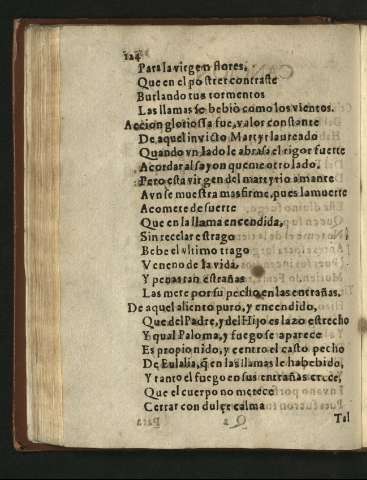 124
Para la virgen flores,
Que en el postrer contraste
Burlando tus tormentos
Las llamas se bebiò como los vientos.
Accion gloriosa fue, valor constante
De aquel invicto Martyr laureado
Quando vn lado le abrasa el rigor fuerte
Acordar al sayon queme otro lado.
Pero esta virgen del martyrio amante
Avn se muestra mas firme, pues la muerte
Acomete de suerte
Que en la llama encendida,
Sin recelar estrago
Bebe el vltimo trago
Veneno de la vida,
Y penas tan estrañas
Las mete por su pecho en las entrañas.
De aquel aliento puro, y encendido,
Que del Padre, y del Hijo es lazo estrecho
Y qual Paloma, y fuego se aparece
Es propio nido, y centro el casto pecho
De Eulalia, q̃ en las llamas le ha bebido,
Y tanto el fuego en sus entrañas crece,
Que el cuerpo no merece
Cerrar con dulce calma
Tal